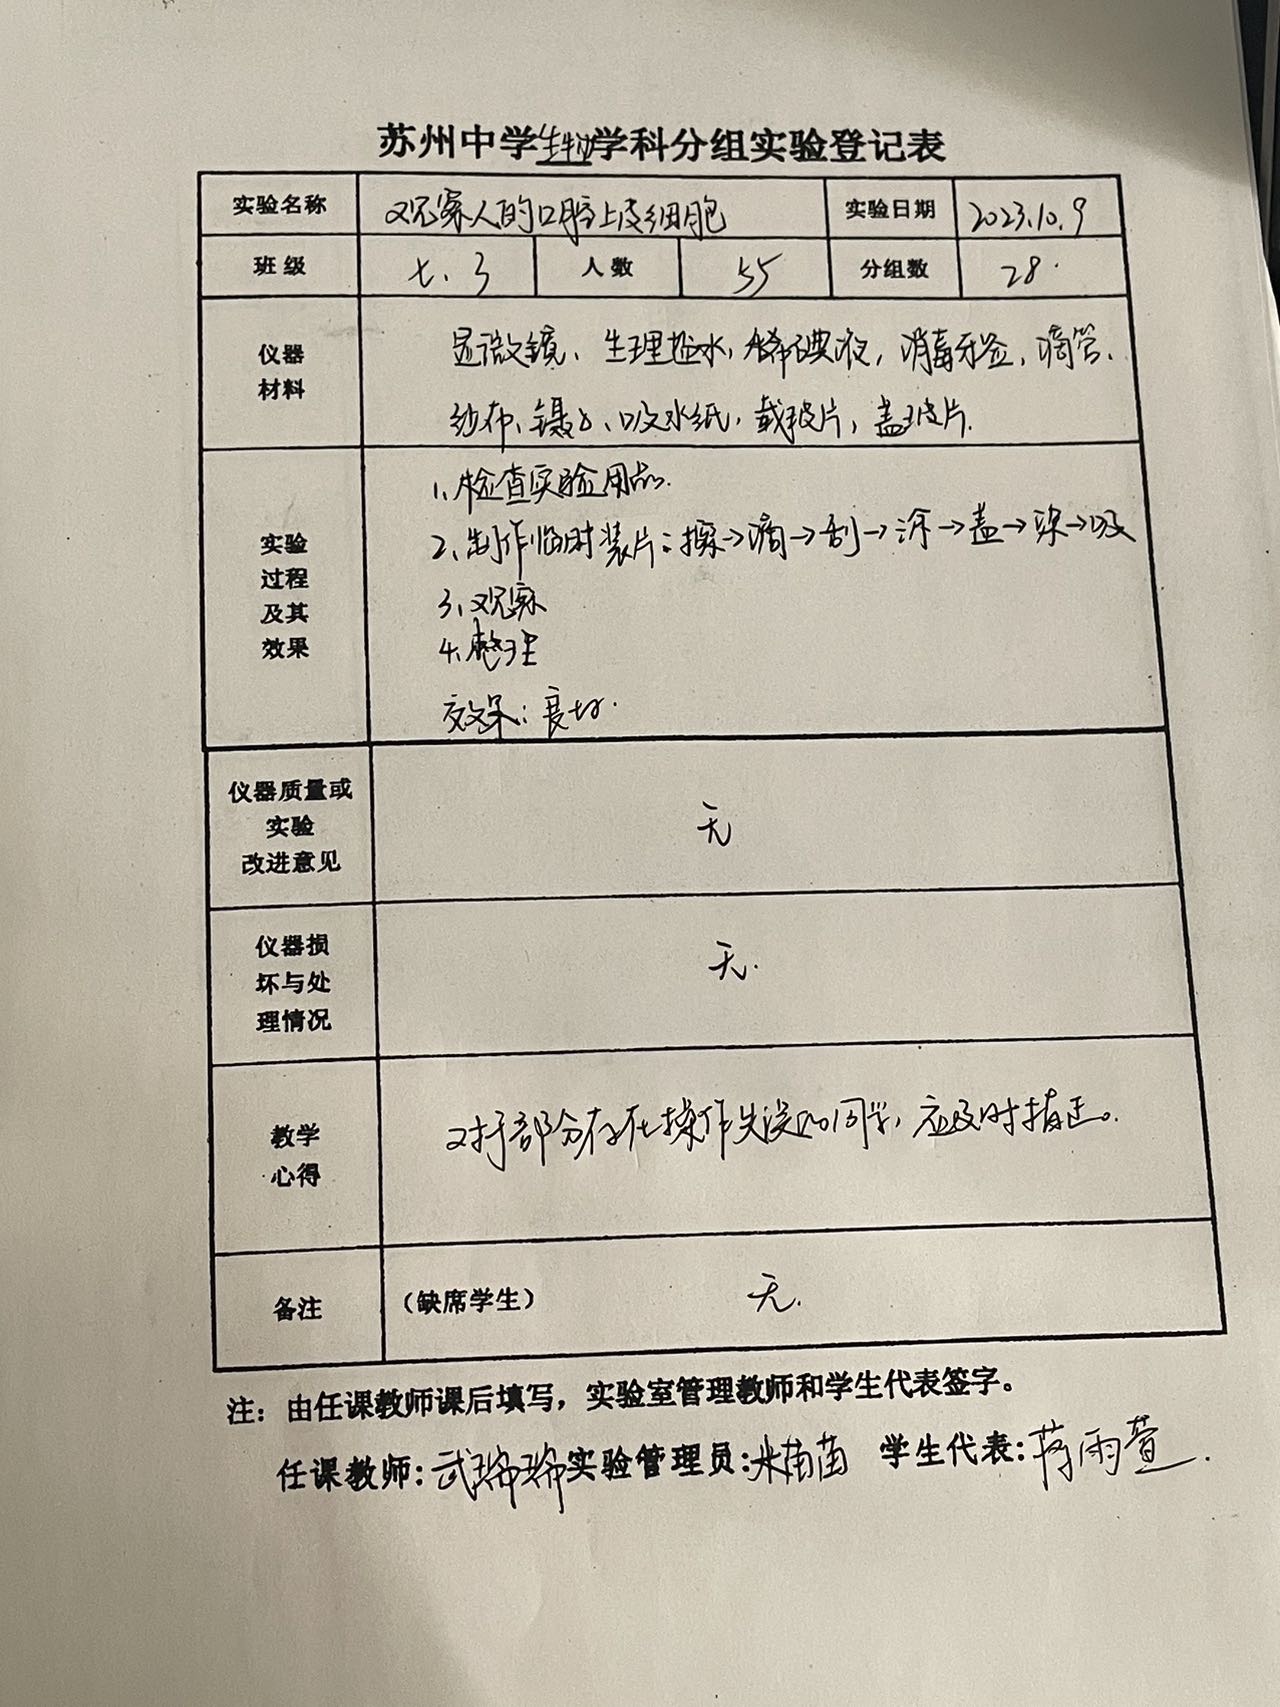 苏州中学生物学科分组实验登记表
实验名称 观察人的口腔上皮细胞 实验日期 2023.10.9
班级 七.3 人数 55 分组数 28.
仪器
材料
显微镜、生理盐水,稀碘液,消毒牙签,滴管、
纱布、镊子、吸水纸,载玻片,盖玻片.
实验
过程
及其
效果
1、检查实验用品.
2、制作临时装片:擦→滴→刮→涂→盖→染→吸
3、观察
4.整理
效果:良好.
仪器质量或
实验
改进意见
无
仪器损
坏与处
理情况
无.
教学
心得
对于部分存在操作失误的同学,应及时指正。
备注
(缺席学生) 无.
注:由任课教师课后填写,实验室管理教师和学生代表签字。
任课教师:武瑞瑞 实验管理员:米苗苗 学生代表:蒋雨萱.